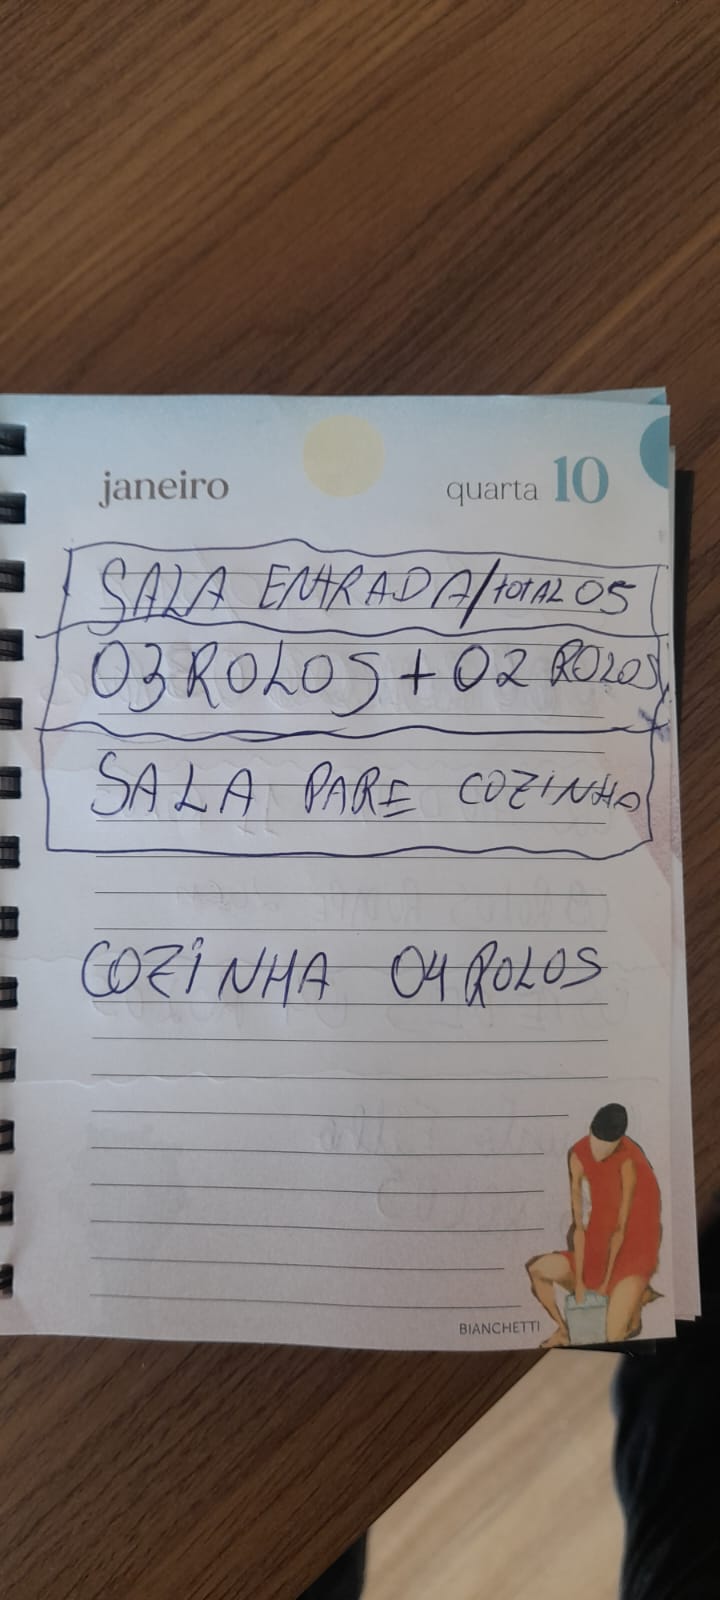 janeiro quarta 10
SALA ENTRADA/TOTAL 05
03 ROLOS + 02 ROLOS
SALA PARE COZINHA
COZINHA 04 ROLOS
BIANCHETTI